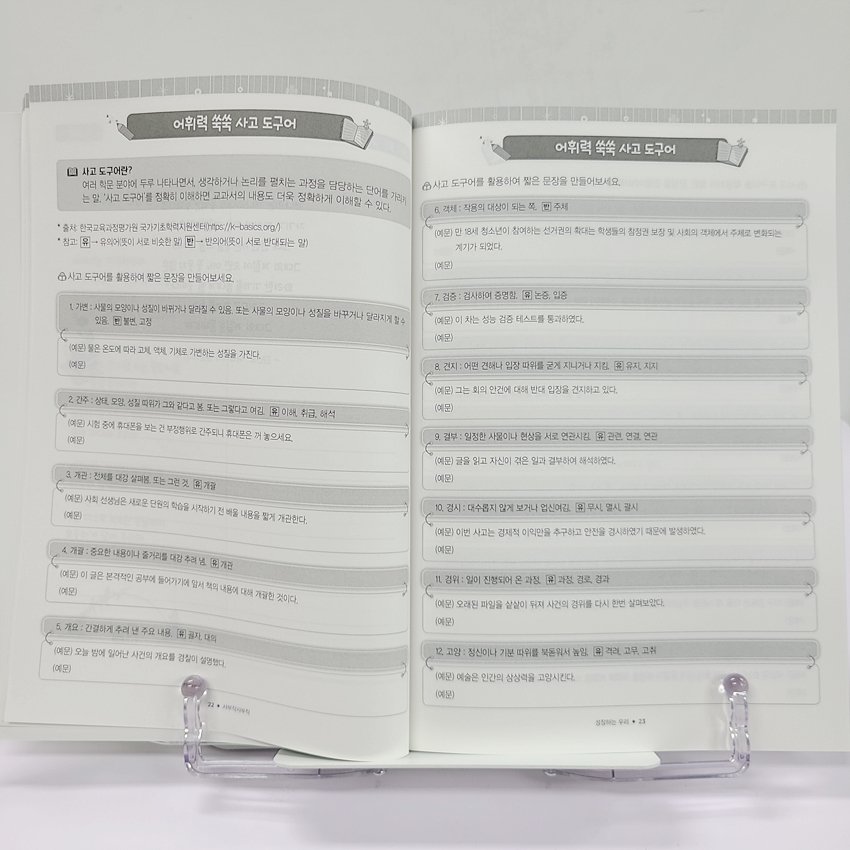 어휘력 쑥쑥 사고 도구어
사고 도구어란?
여러 학문 분야에 두루 나타나면서, 생각하거나 논리를 펼치는 과정을 담당하는 단어를 가리키
는 말. '사고 도구어'를 정확히 이해하면 교과서의 내용도 더욱 정확하게 이해할 수 있다.
* 출처: 한국교육과정평가원 국가기초학력지원센터(https://k-basics.org/)
* 참고: 유 → 유의어(뜻이 서로 비슷한 말) 반 → 반의어(뜻이 서로 반대되는 말)
사고 도구어를 활용하여 짧은 문장을 만들어보세요.
1. 가변 : 사물의 모양이나 성질이 바뀌거나 달라질 수 있음. 또는 사물의 모양이나 성질을 바꾸거나 달라지게 할 수
있음. 반 불변, 고정
(예문) 물은 온도에 따라 고체, 액체, 기체로 가변하는 성질을 가진다.
(예문)
2. 간주 : 상태, 모양, 성질 따위가 그와 같다고 봄. 또는 그렇다고 여김. 유 이해, 취급, 해석
(예문) 시험 중에 휴대폰을 보는 건 부정행위로 간주되니 휴대폰은 꺼 놓으세요.
(예문)
3. 개관 : 전체를 대강 살펴봄. 또는 그런 것. 유 개괄
(예문) 사회 선생님은 새로운 단원의 학습을 시작하기 전 배울 내용을 짧게 개관한다.
(예문)
4. 개괄 : 중요한 내용이나 줄거리를 대강 추려 냄. 유 개관
(예문) 이 글은 본격적인 공부에 들어가기에 앞서 책의 내용에 대해 개괄한 것이다.
(예문)
5. 개요 : 간결하게 추려 낸 주요 내용. 유 골자, 대의
(예문) 오늘 밤에 일어난 사건의 개요를 경찰이 설명했다.
(예문)
22 • 사부작사부작
어휘력 쑥쑥 사고 도구어
사고 도구어를 활용하여 짧은 문장을 만들어보세요.
6. 객체 : 작용의 대상이 되는 쪽. 반 주체
(예문) 만 18세 청소년이 참여하는 선거권의 확대는 학생들의 참정권 보장 및 사회의 객체에서 주체로 변화되는
계기가 되었다.
(예문)
7. 검증 : 검사하여 증명함. 유 논증, 입증
(예문) 이 차는 성능 검증 테스트를 통과하였다.
(예문)
8. 견지 : 어떤 견해나 입장 따위를 굳게 지니거나 지킴. 유 유지, 지지
(예문) 그는 회의 안건에 대해 반대 입장을 견지하고 있다.
(예문)
9. 결부 : 일정한 사물이나 현상을 서로 연관시킴. 유 관련, 연결, 연관
(예문) 글을 읽고 자신이 겪은 일과 결부하여 해석하였다.
(예문)
10. 경시 : 대수롭지 않게 보거나 업신여김. 유 무시, 멸시, 괄시
(예문) 이번 사고는 경제적 이익만을 추구하고 안전을 경시하였기 때문에 발생하였다.
(예문)
11. 경위 : 일이 진행되어 온 과정. 유 과정, 경로, 경과
(예문) 오래된 파일을 샅샅이 뒤져 사건의 경위를 다시 한번 살펴보았다.
(예문)
12. 고양 : 정신이나 기분 따위를 북돋워서 높임. 유 격려, 고무, 고취
(예문) 예술은 인간의 상상력을 고양시킨다.
(예문)
성장하는 우리 • 23